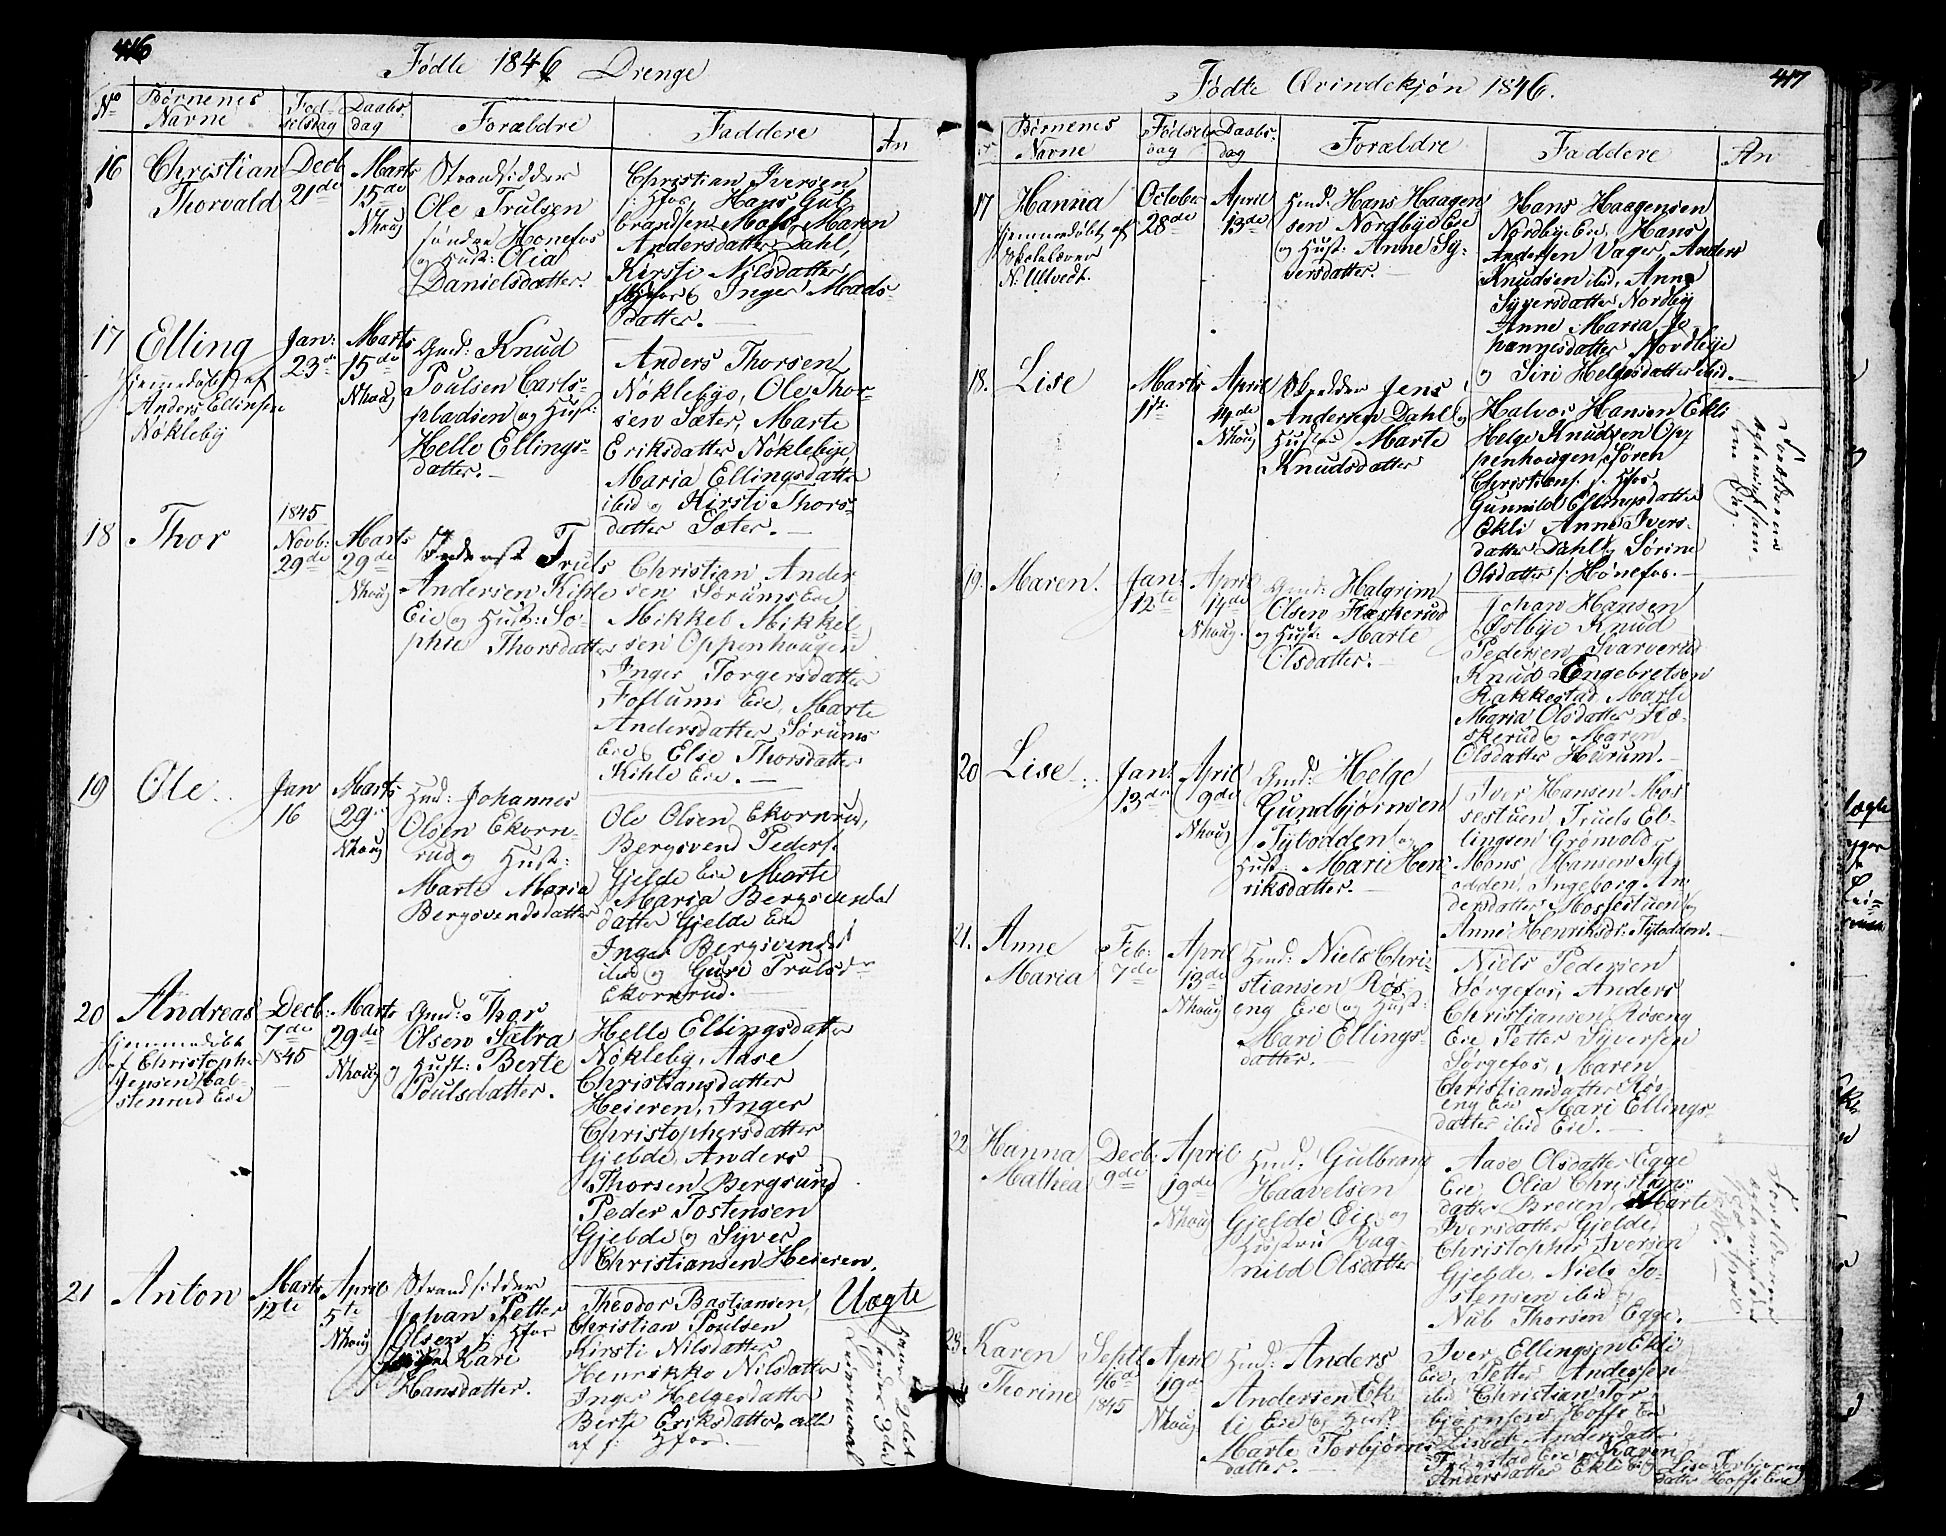 416
Fødte 1846 Drenge
No
Børnenes Navne
Fødselsdag
Daabsdag
Forældre
Faddere
An
16
Christian
Thorvald
Decb
21de
Marts
15de
Nhoug
Strandsidder
Ole Trulsen
søndre Honefos
og Hust: Olia
Danielsdatter.
Christian Iversen
s: Hfos, Hans Gul
brandsen Moss, Maren
Andersdatter Dahl,
Kirsti Nilsdatter
Hfos og Inger Mads-
datter.
17
Elling
hjemmedøbt af
Anders Ellinsen
Nøkleby
Jan:
23de
Marts
15de
Nhoug
Gmd: Knud
Poulsen Carls-
pladsen og Hust:
Helle Ellings-
datter.
Anders Thorsen
Nøklebye, Ole Thor-
sen Sæter, Marte
Eriksdatter Nøklebye,
Maria Ellingsdatter
ibid og Kirsti Thors-
datter Sæter.
18
Thor
1845
Novb:
29de
Marts
29de
Nhoug
Inderst Truls
Andersen Kihle
Eie og Hust: So-
phie Thorsdatter
Christian Ander
sen Sørums Eie
Mikkel Mikkel-
sen Oppenhougen
Inger Torgersdatter
Follums Eie, Marte
Andersdatter Sørums
Eie og Else Thorsdatter
Kihle Eie.
19
Ole
Jan
16
Marts
29de
Nhoug
Hmd: Johannes
Olsen Ekorn-
rud og Hust:
Marte Maria
Bergsvendsdatter
Ole Olsen Ekornrud,
Bergsvend Peders.
Gjelde Eie Marte
Maria Bergsvends
datter Gjelde Eie
Inger Bergsvendsd
ibid og Guri Trulsdr
Ekornrud.
20
Andreas
hjemmedøbt
af Christopher
Jensen Hal-
stenrud Eie
Decb:
7de
1845
Marts
29de
Nhoug
Gmd: Thor
Olsen Sætra
og Hust: Berte
Poulsdatter.
Helle Ellingsdatter
Nøkleby, Aase
Christiansdatter
Heieren, Inger
Christophersdatter
Gjelde, Anders
Thorsen Bergsund
Peder Tostensen
Gjelde og Syver
Christiansen Heieren.
21
Anton
Marts
12te
April
5te
Nhoug
Strandsidder
Johan Petter
Olsen s: Hfos
Kari
Hansdatter.
Theodor Bastiansen,
Christian Poulsen
Kirsti Nilsdatter
Henrikke Nilsdatter
Inger Helgesdatter
Berte Eriksdatter, alle
af s: Hfos.
Uægte
Leiermaal
417
Fødte Qvindekjøn 1846.
Børnenes Navne
Fødselsdag
Daabsdag
Forældre
Faddere
An
17
Hanna
hjemmedøbt af
Skolelærer
N: Ultvedt.
October
28de
April
13de
Hmd: Hans Haagen
sen Nordbye Eie
og Hust: Anne Sy-
versdatter.
Hans Haagensen
Nordbye Eie, Hans
Andersen Vager, Anders
Knudsen ibid, Anne
Syversdatter Nordby
Anne Maria Jo
hannesdatter Nordbye
og Siri Helgesdatter ibid.
18.
Lise
Marts
11te
April
14de
Nhoug
Andersen Dahl og
Hustru Marte
Knudsdatter
Halvor Hansen Ekli
Helge Knudsen Opp
penhougen, Søren
Christians. s. Hfos,
Gunnild Ellingsdatter
Ekli Anne Ivers-
datter Dahl og Sørine
Olsdatter s: Hønefos.
Forældrene
19.
Maren.
Jan:
12te
April
14de
Nhoug.
Gmd: Halgrim
Olsen Fleskerud
og Hust: Marte
Olsdatter.
Johan Hansen
Østbye Knud
Pedersen Svarverud
Knud Engebretsen
Rakkestad Marte
Maria Olsdatter Kæ-
skerud og Maren
Olsdatter Hurum.
20
Lise
Jan:
13de
April
9de
Nhoug
Gmd: Helge
Gundbjørnsen
Tytodden og
Hust: Mari Hen
riksdatter.
Iver Hansen Mos
sestuen, Truls El-
lingsen Grønvold
Mons Hansen Tyt
odden, Ingeborg An
dersdatter Mossestuen og
Anne Henriksdr: Tytodden.
21.
Anne
Maria
Feb:
7de
April
13de
Nhoug
Hmd: Niels Chri-
stiansen Røs
eng Eie og Hust:
Mari Ellings-
datter.
Niels Pedersen
Sørgefos, Anders
Christiansen Røseng
Eie Petter Syversen
Sørgefos, Maren
Christiansdatter Røs
eng Eie Mari Ellings-
datter ibid Eie.
22
Hanna
Mathea
Decb:
9de
April
19de
Nhoug
Hmd: Gulbrand
Haavelsen
Gjelde Eie og
Hustru Rag-
nild Olsdatter
Aase Olsdatter Egge
Eie Olia Christians
datter Breien, Marte
Iversdatter Gjelde,
Christopher Iversen
Gjelde, Niels To-
stensen ibid og
Nub Thorsen Egge.
Forældrene
23.
Karen
Thorine
Septb
16de
1845
April
19de
Nhoug
Hmd: Anders
Andersen Ek
li Eie og Hust:
Marte Torbjørns
datter.
Iver Ellingsen Ekli
Eie, Petter Andersen
ibid Christian Tor
bjørnsen Hoffs Eie
Lisbet Andersdatter
Tregstad Eie, Karen
Andersdatter Ekli Eie og Lise Torbjørns
datter Hoffs Eie